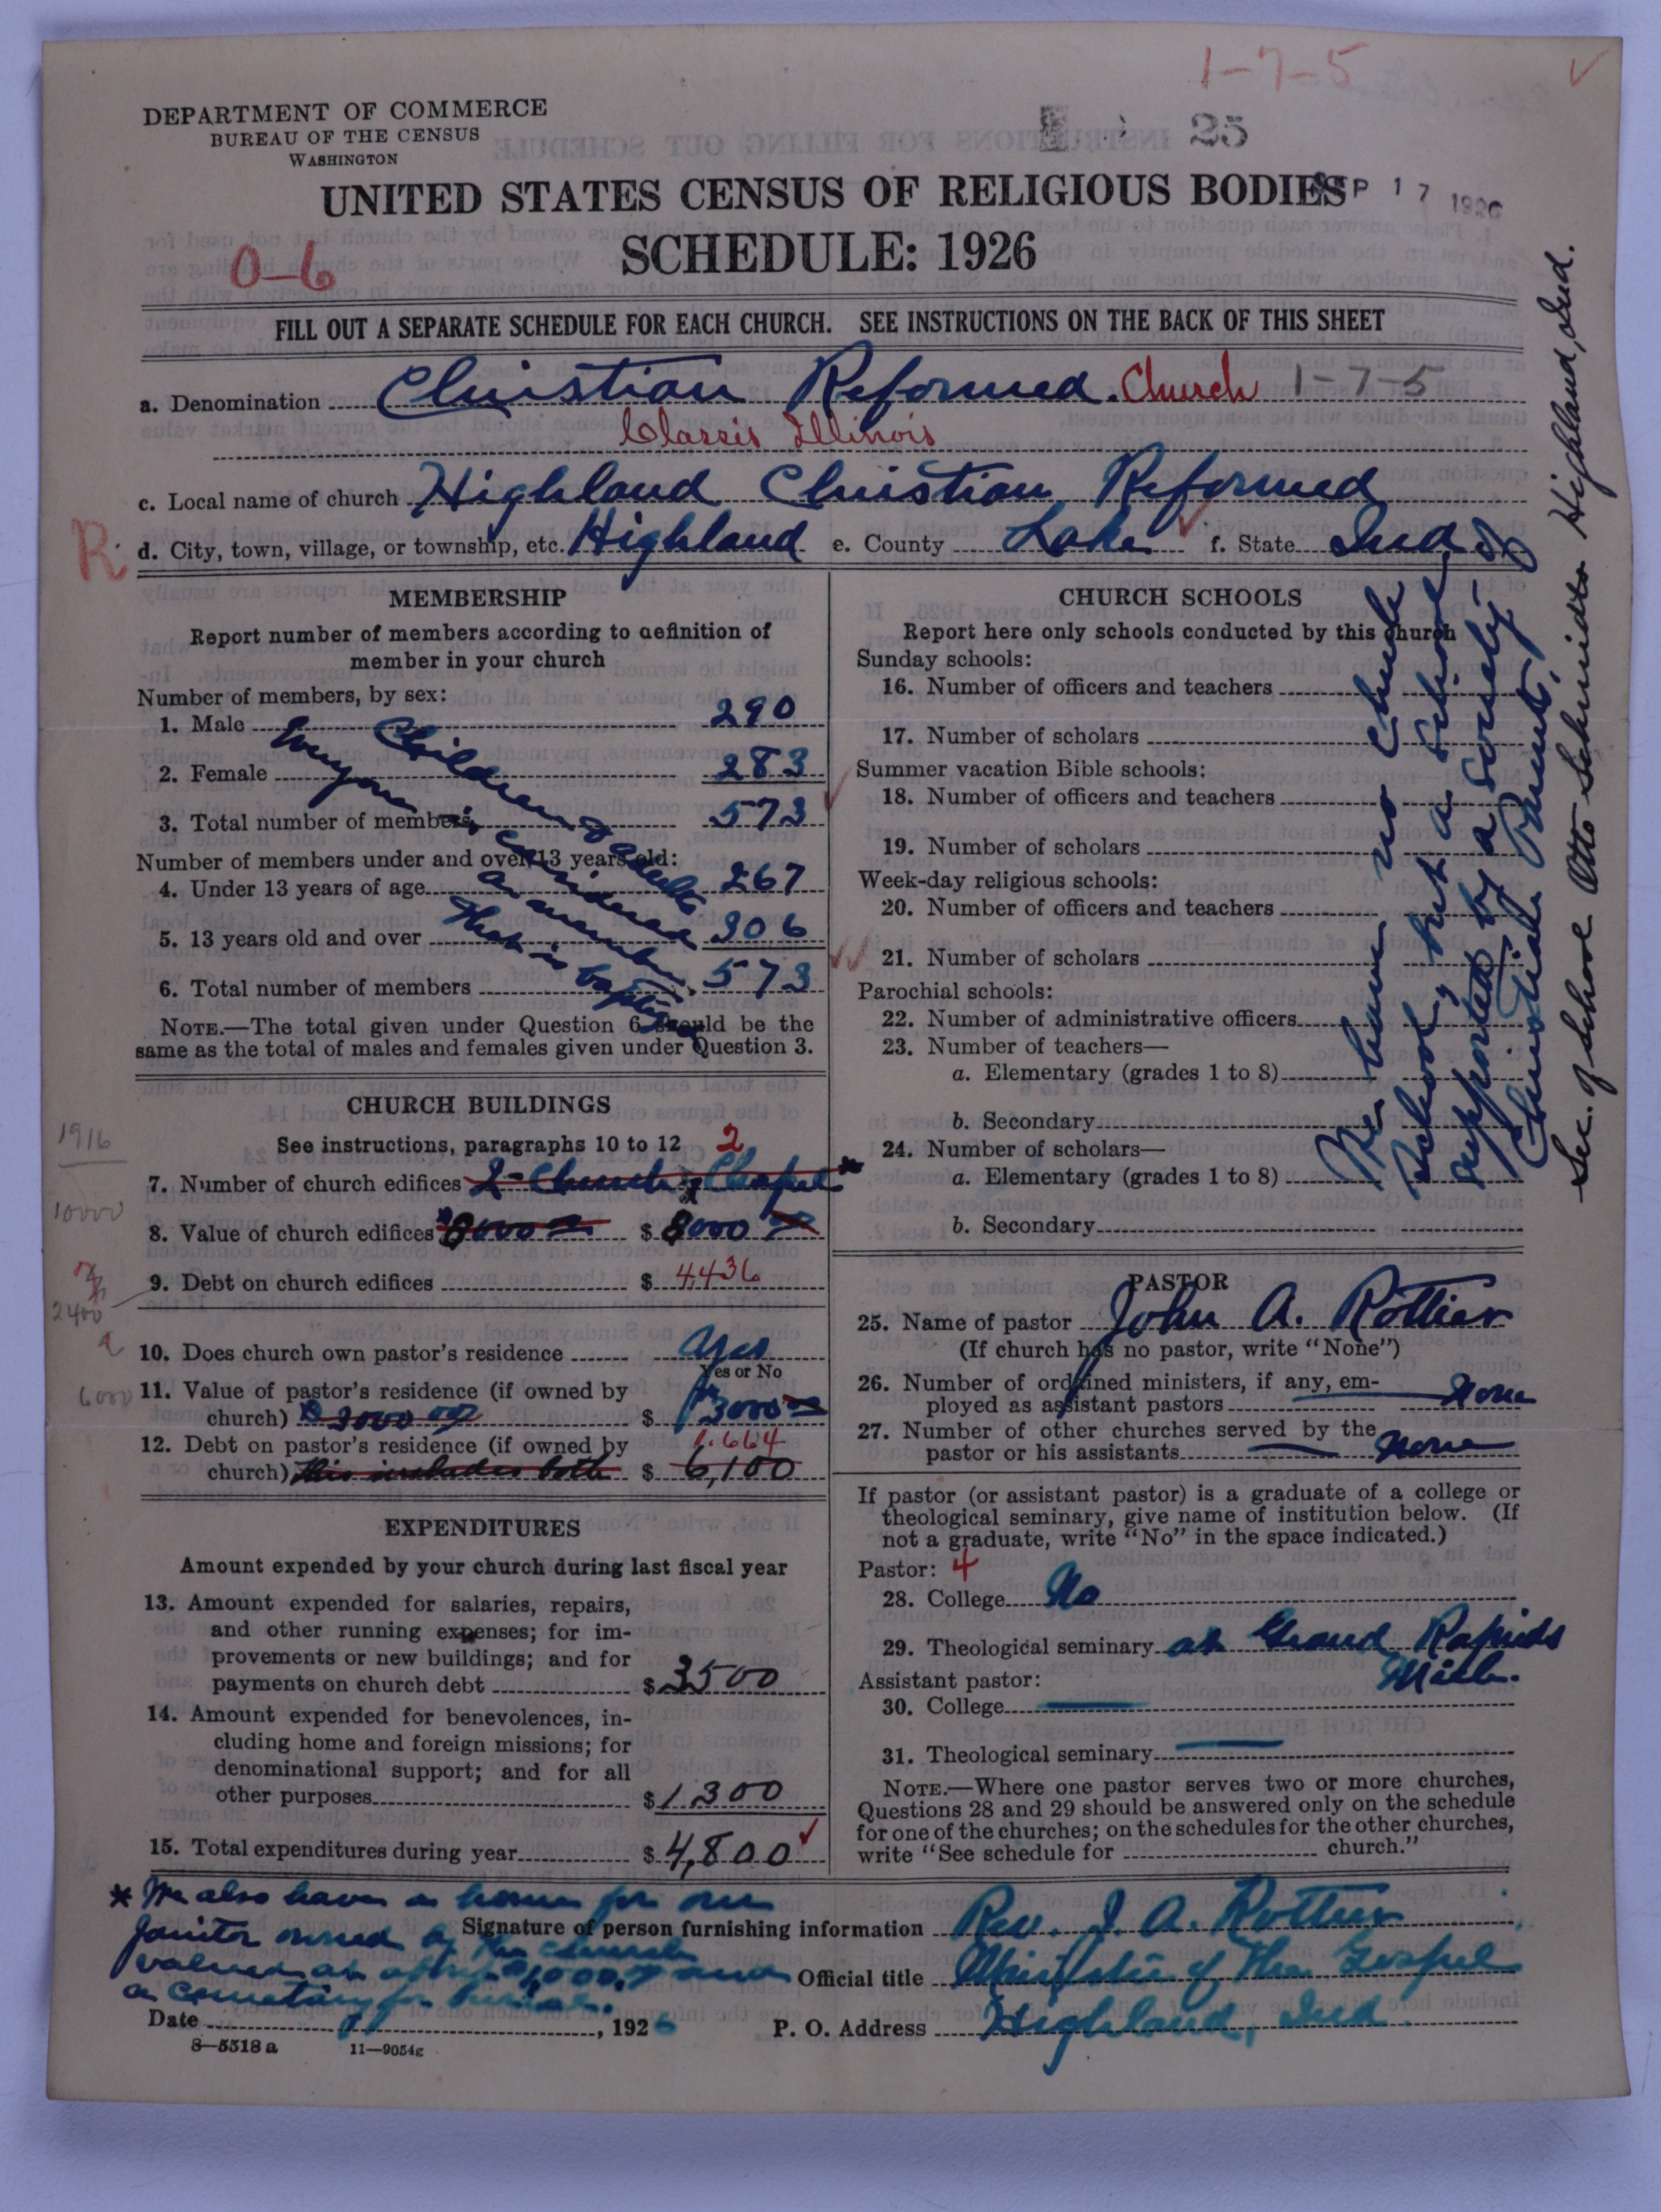 1-7-5
DEPARTMENT OF COMMERCE
BUREAU OF THE CENSUS
WASHINGTON
25
UNITED STATES CENSUS OF RELIGIOUS BODIES
SEP 17 1926
SCHEDULE: 1926
0-6
FILL OUT A SEPARATE SCHEDULE FOR EACH CHURCH. SEE INSTRUCTIONS ON THE BACK OF THIS SHEET
a. Denomination Christian Reformed. Church 1-7-5
Classis Illinois
c. Local name of church Highland Christian Reformed
R. d. City, town, village, or township, etc. Highland e. County Lake f. State Ind.
MEMBERSHIP
Report number of members according to definition of
member in your church
Number of members, by sex:
1. Male 290
2. Female 283
3. Total number of members 573
Number of members under and over 13 years old:
4. Under 13 years of age 267
5. 13 years old and over 306
6. Total number of members 573
Children & adults
Everyone is considered
a member
that is baptized
NOTE.—The total given under Question 6 should be the
same as the total of males and females given under Question 3.
CHURCH BUILDINGS
See instructions, paragraphs 10 to 12
1916
7. Number of church edifices 2- Church & Chapel * 2
10000
8. Value of church edifices 8000 00 $ 8000 00
9. Debt on church edifices $ 4436
2400
10. Does church own pastor's residence Yes
Yes or No
6000
11. Value of pastor's residence (if owned by
church) $ 3000 00 $ 3000
12. Debt on pastor's residence (if owned by 1.664
church) this includes both $ 6,100
EXPENDITURES
Amount expended by your church during last fiscal year
13. Amount expended for salaries, repairs,
and other running expenses; for im-
provements or new buildings; and for
payments on church debt $ 3500
14. Amount expended for benevolences, in-
cluding home and foreign missions; for
denominational support; and for all
other purposes $ 1300
15. Total expenditures during year $ 4,800
CHURCH SCHOOLS
Report here only schools conducted by this church
Sunday schools:
16. Number of officers and teachers
17. Number of scholars
Summer vacation Bible schools:
18. Number of officers and teachers
19. Number of scholars
Week-day religious schools:
20. Number of officers and teachers
21. Number of scholars
Parochial schools:
22. Number of administrative officers
23. Number of teachers—
a. Elementary (grades 1 to 8)
b. Secondary
24. Number of scholars—
a. Elementary (grades 1 to 8)
b. Secondary
We have no church
school, but a school
supported by a society of
Christian Parents,
Sec. of School Otto Schmidt Highland, Ind.
PASTOR
25. Name of pastor John A. Rottier
(If church has no pastor, write "None")
26. Number of ordained ministers, if any, em-
ployed as assistant pastors None
27. Number of other churches served by the
pastor or his assistants None
If pastor (or assistant pastor) is a graduate of a college or
theological seminary, give name of institution below. (If
not a graduate, write "No" in the space indicated.)
Pastor: 4
28. College No
29. Theological seminary at Grand Rapids
Mich.
Assistant pastor:
30. College
31. Theological seminary
NOTE.—Where one pastor serves two or more churches,
Questions 28 and 29 should be answered only on the schedule
for one of the churches; on the schedules for the other churches,
write "See schedule for church."
* We also have a home for our
janitor owned by the church
valued at $1,000.00 and
a cemetery for burial.
Signature of person furnishing information Rev. J. A. Rottier
Official title Minister of the Gospel
Date , 1926 P. O. Address Highland, Ind.
8—5518 a 11—9054g